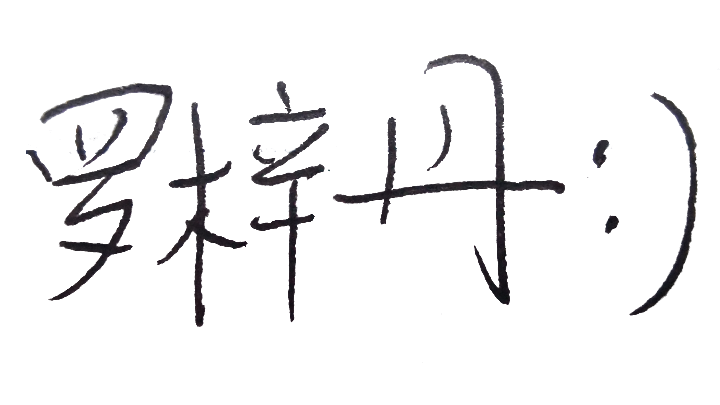 罗梓丹:)